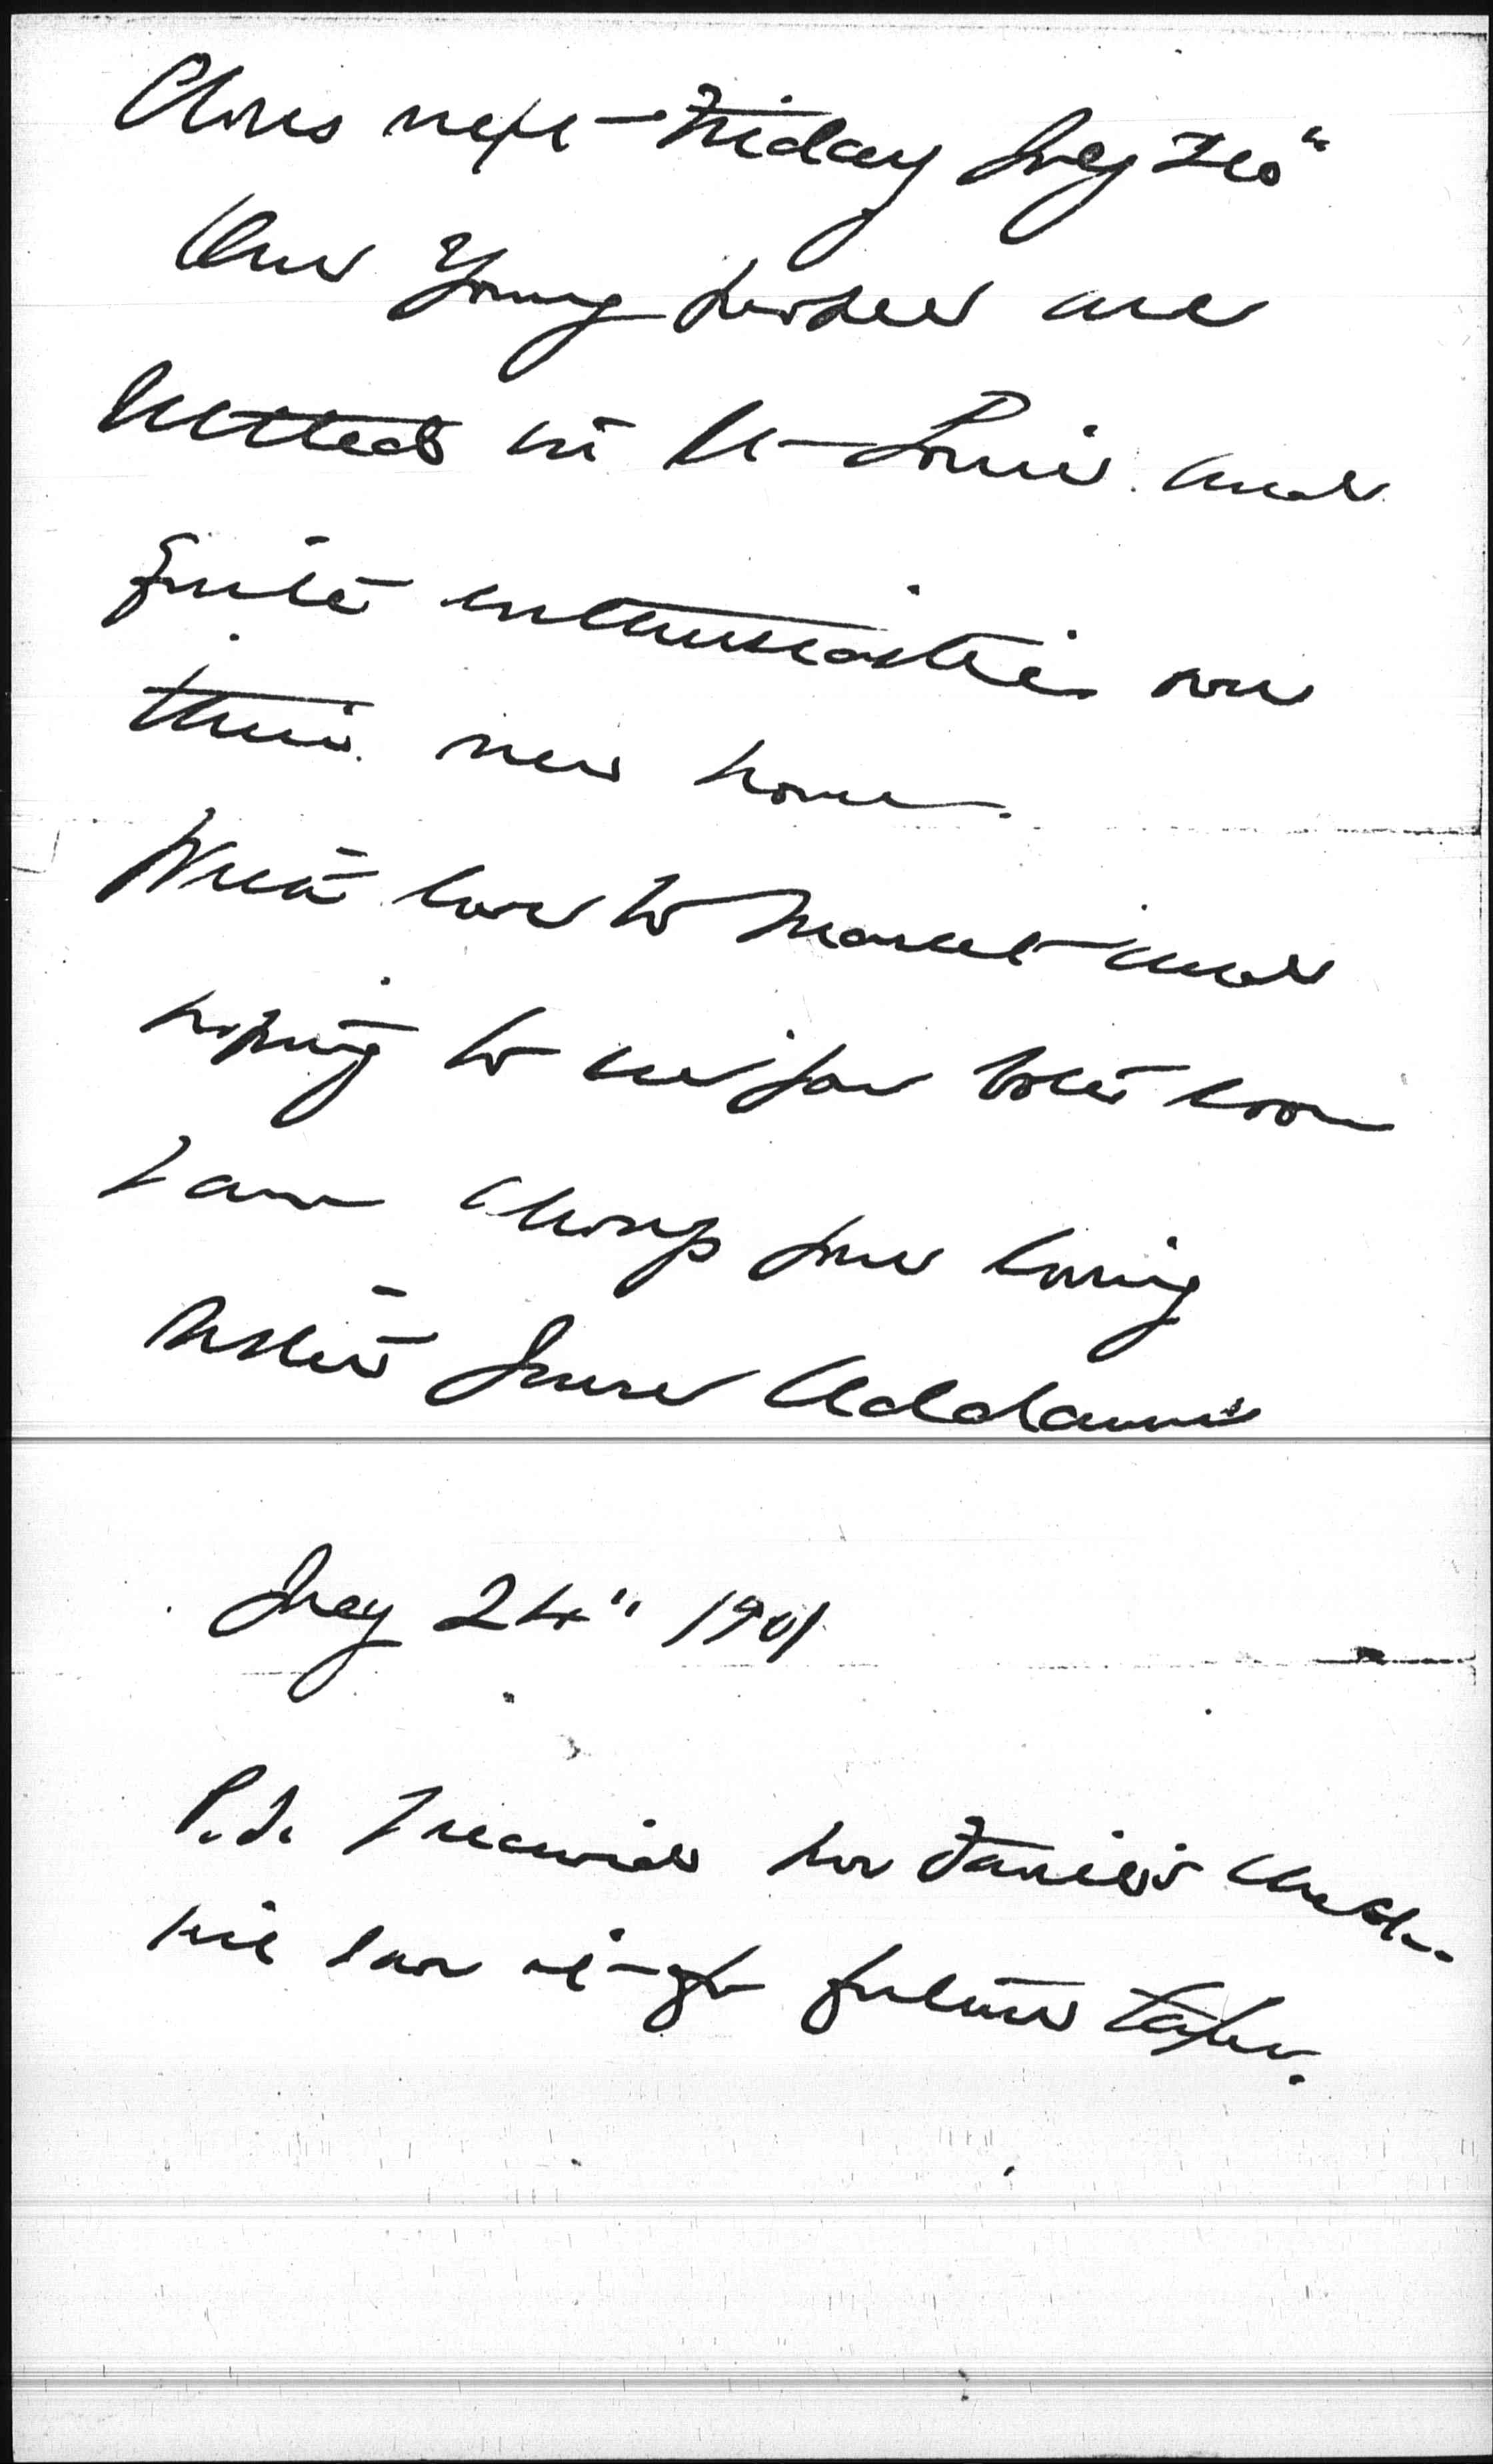 closes next Friday July 26"
Our young people are
settled in St Louis and
quite enthusiastic over
their new home.
With love to Marcet and
hoping to see you both soon
I am always your loving
sister Jane Addams
July 24" 1901
P.S. I received Mr check
will save it for future